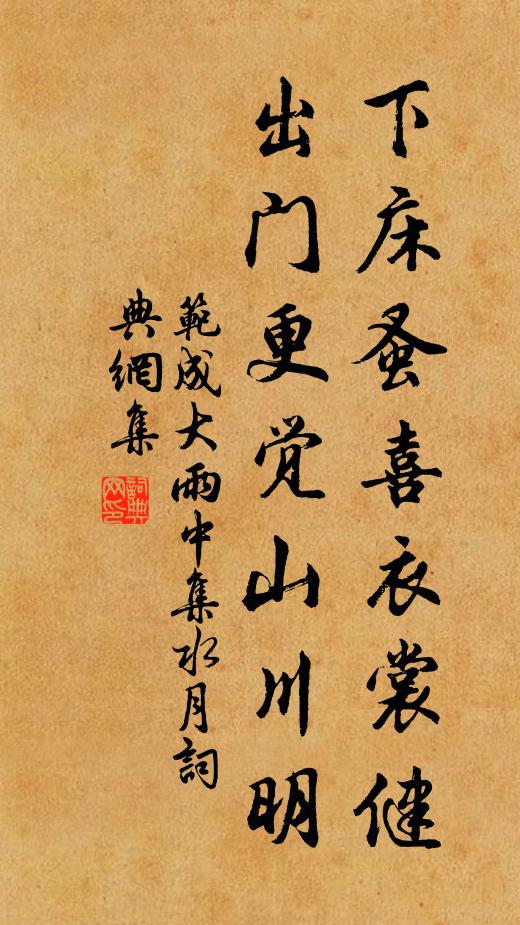 下床蚤喜衣裳健
出门更觉山川明
範成大雨中集水月詞
典網集
詞典
网印